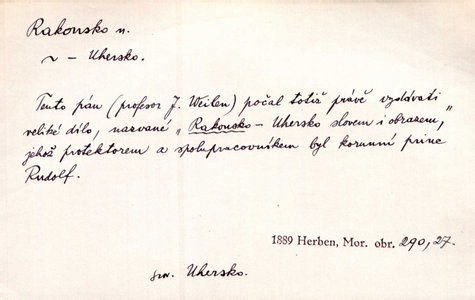 Rakousko n.
~ – Uhersko.
Tento pán (profesor J. Weilen) počal totiž právě vydávati
veliké dílo, nazvané „Rakousko – Uhersko slovem i obrazem,"
jehož protektorem a spolupracovníkem byl korunní princ
Rudolf.
1889 Herben, Mor. obr. 290, 27.
srv. Uhersko.